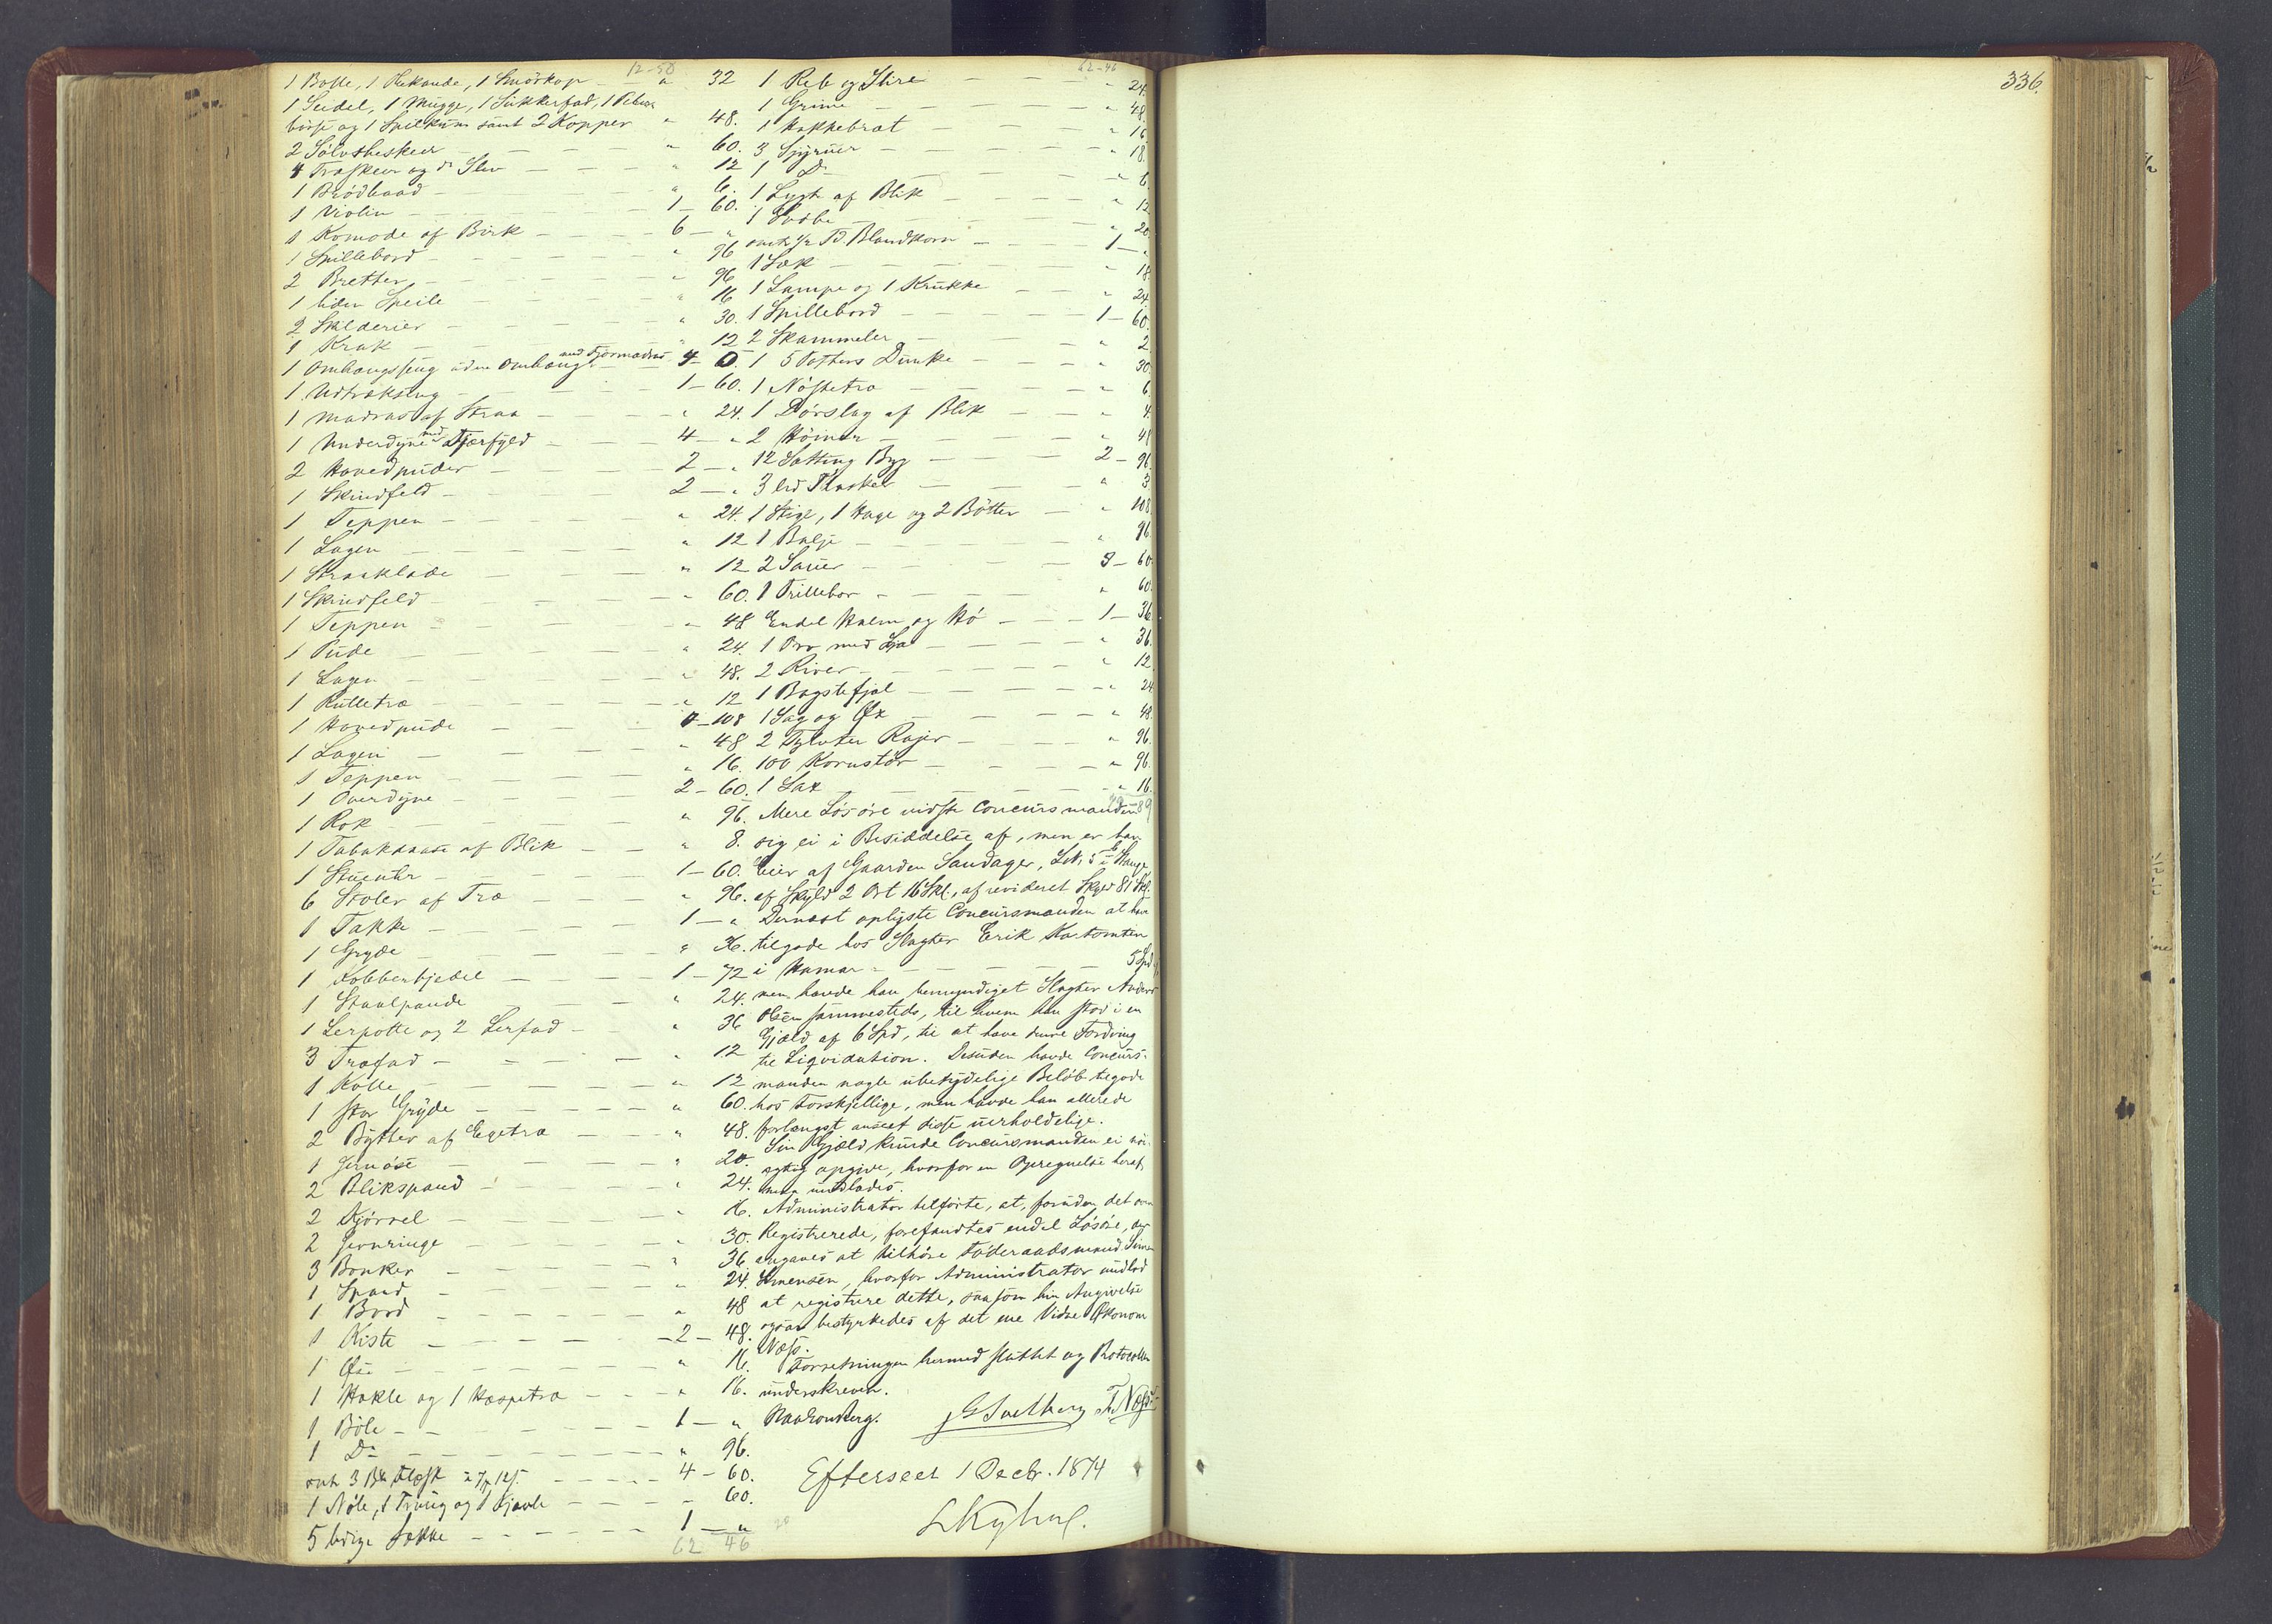 12-50
1 Bolle, 1 Thekande, 1 Smörkop - " 32
1 Seidel, 1 Mugge, 1 Sukkerfad, 1 Peber
bösse og 1 Spilkum samt 2 Kopper " 48.
2 Sölvtheskeer - - - " 60.
4 Træskeer og do Slev - - - " 12
1 Brödbaad - - - " 6.
1 Violin - - - 1 - 60.
1 Komode af Birk - - - 6 - "
1 Spillebord - - - " 96
2 Bretter - - - " 96
1 liden Speile - - - " 16
2 Skilderier - - - " 30.
1 Krak - - - " 12
1 Omhangsseng uden Omhang med Fjørmadras 4 - 0.
1 Udtrækseng - - - 1 - 60.
1 Madras af Straa - - - " 24.
1 Underdyne med Fjærfyld - - - 4 - "
2 Hovedpuder - - - 2 - "
1 Skindfeld - - - 2 - "
1 Teppen - - - " 24.
1 Lagen - - - " 12
1 Straaklæde - - - " 12
1 Skindfeld - - - " 60.
1 Teppen - - - " 48
1 Pude - - - " 24.
1 Lagen - - - " 48.
1 Rulletræ - - - " 12
1 Hovedpude - - - 0 - 108
1 Lagen - - - " 48
1 Teppen - - - " 16.
1 Overdyne - - - 2 - 60.
1 Rok - - - " 96.
1 Tobakdaase af Blik - - " 8.
1 Stueuhr - - - 1 - 60.
6 Stoler af Træ - - - " 96.
1 Takke - - - 1 - "
1 Gryde - - - " 36.
1 Kobberkjedel - - - 1 - 72
1 Staalpande - - - " 24.
1 Lerpotte og 2 Lerfad - - " 36
3 Træfad - - - " 12
1 Kolle - - - " 12
1 stor Gryde - - - " 60.
2 Bytter af Egetræ - - - " 48.
1 Jernöse - - - " 20.
2 Blikspand - - - " 24.
2 Kjørrel - - - " 16.
2 Jernringe - - - " 30.
3 Bonker - - - " 36
1 Spand - - - " 24.
1 Bord - - - " 48
1 Kiste - - - 2 - 48.
1 Øse - - - " 16.
1 Hakle og 1 Haspetræ - - - " 16.
1 Böle - - - 1 - "
1 Do - - - " 96.
omt. 3 Bk Flesk - - - 4 - 60.
1 Nöle, 1 Traug og 1 - - - " 60.
5 ledige Sække - - - 1 - "
62 46
62-46
1 Reb og Stire - - " 24.
1 Grime - - - " 48.
1 Hakkebrat - - - " 16
3 Spyruer - - - " 18.
1 Do - - - " 6.
1 Lygt af Blik - - - " 12
1 - - - " 20
omt. 1/2 Td. Blandkorn - 1 - "
1 Sæk - - - " 18.
1 Lampe og 1 Krukke - - " 24.
1 Spillebord - - - 1 - 60.
2 Skammeler - - - " 2
1 5 Potters Dunke - - " 30.
1 Nöstetræ - - - " 6.
1 Dörslag af Blik - - " 4.
2 - - - " 48
12 Sætting Byg - - - 2 - 96.
3 led. Flasker - - - " 3
1 Stige, 1 Hage og 2 Bötter - " 108
1 Balje - - - " 96.
2 Sauer - - - 3 - 60.
1 Trillebor - - - " 60.
Endel Halm og Hö - - 1 - 36
1 Orv med Ljaa - - - " 36.
2 River - - - " 12.
1 Bagstefjel - - - " 24
1 Sag og Øx - - - " 48.
2 Tylvter Rajer - - - " 96.
100 Kornstör - - - " 96.
1 Sax - - - " 16.
Mere Lösöre vidste Concursmanden
sig ei i Besiddelse af, men er han
Eier af Gaarden Sandager, LN. 5 i Stange
af Skyld 2 Ort 16 Skl., af revideret Skyld 81 Skl.
Dernæst oplyste Concursmanden at have
tilgode hos Slagter Erik
i Hamar - - - 5 Spd
men havde han bemyndiget Slagter Anders
Olsen sammesteds, til hvem han stod i en
Gjæld af 6 Spd, til at have denne Fordring
til Liqvidation. Desuden havde Concurs-
manden nogle ubetydelige Beløb tilgode
hos Forskjellige, men havde han allerede
forlængst anseet disse uerholdelige.
Sin Gjæld kunde Concursmanden ei nöi-
agtig opgive, hvorfor en Opregnelse heraf
undlades.
Administrator tilførte, at, foruden det oven
Registrerede, forefandtes endel Løsøre, der
angaves at tilhøre Föderaadsmand Simen
Simensen, hvorfor Administrator undlod
at registrere dette, saasom hin Angivelse
ogsaa bestyrkedes af det ene Vidne Økonom
Næss.
Forretningen hermed sluttet og Protocollen
underskreven.
G Solberg T. Næss
Efterseet 1 Decbr. 1874
336.